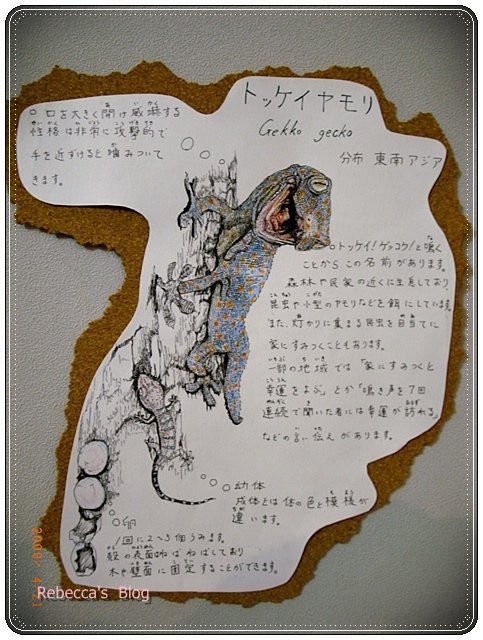 トッケイヤモリ
Gekko gecko
分布 東南アジア
口を大きく開け威嚇する
性格は非常に攻撃的で
手を近ずけると噛みついて
きます。
トッケイ!ゲッコウ!と鳴く
ことからこの名前があります。
森林や民家の近くに生息しており、
昆虫や小型のヤモリなどを餌にしています。
また、灯かりに集まる昆虫を目当てに
家にすみつくこともあります。
一部の地域では「家にすみつくと
幸運をよぶ」とか「鳴き声を7回
連続で聞いた者には幸運が訪れる」
などの言い伝えがあります。
幼体
成体とは体の色と模様が
違います。
卵
1回に2~3個うみます。
殻の表面はねばねばしており
木や壁面に固定することができます。
Rebecca's Blog